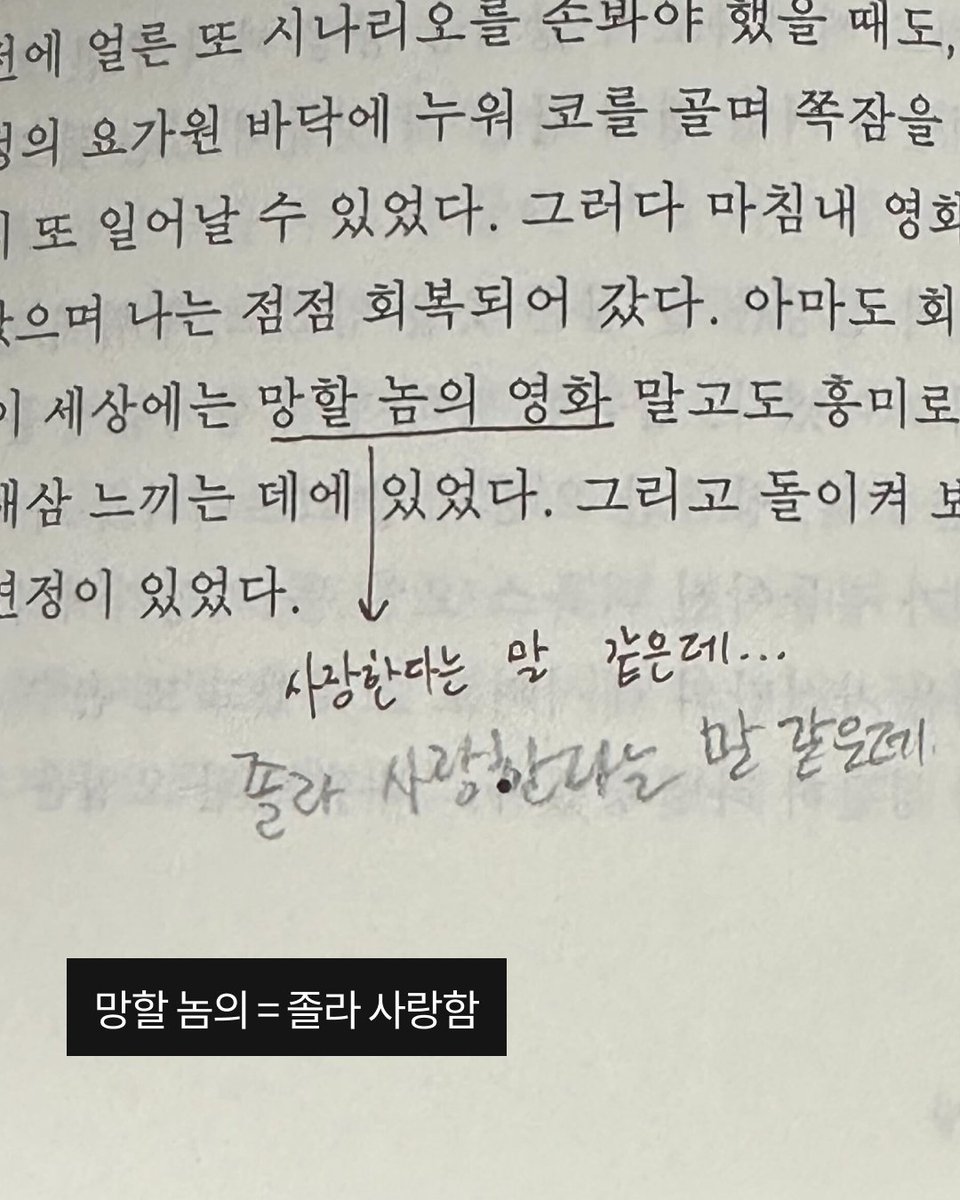 전에 얼른 또 시나리오를 손봐야 했을 때도,
의 요가원 바닥에 누워 코를 골며 쪽잠을
또 일어날 수 있었다. 그러다 마침내 영화
으며 나는 점점 회복되어 갔다. 아마도 회
이 세상에는 망할 놈의 영화 말고도 흥미로
새삼 느끼는 데에 있었다. 그리고 돌이켜 보
있었다.
사랑한다는 말 같은데...
졸라 사랑한다는 말 같은데
망할 놈의 = 졸라 사랑함